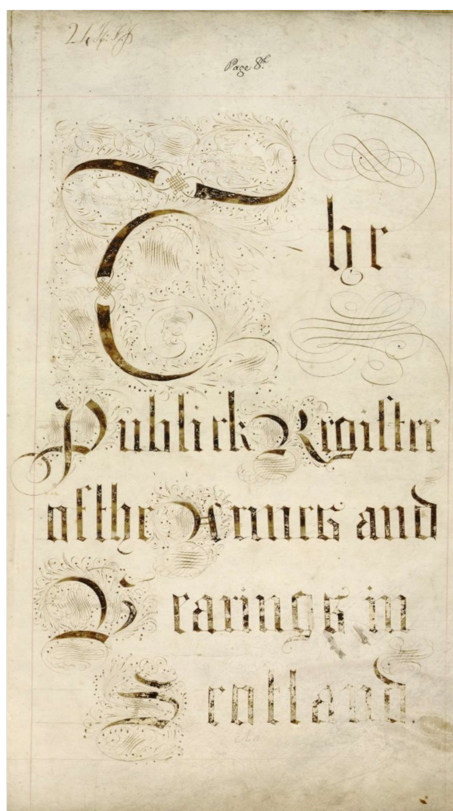 Page 8.
The
Publick Register
of the Armes and
Bearings in
Scotland.